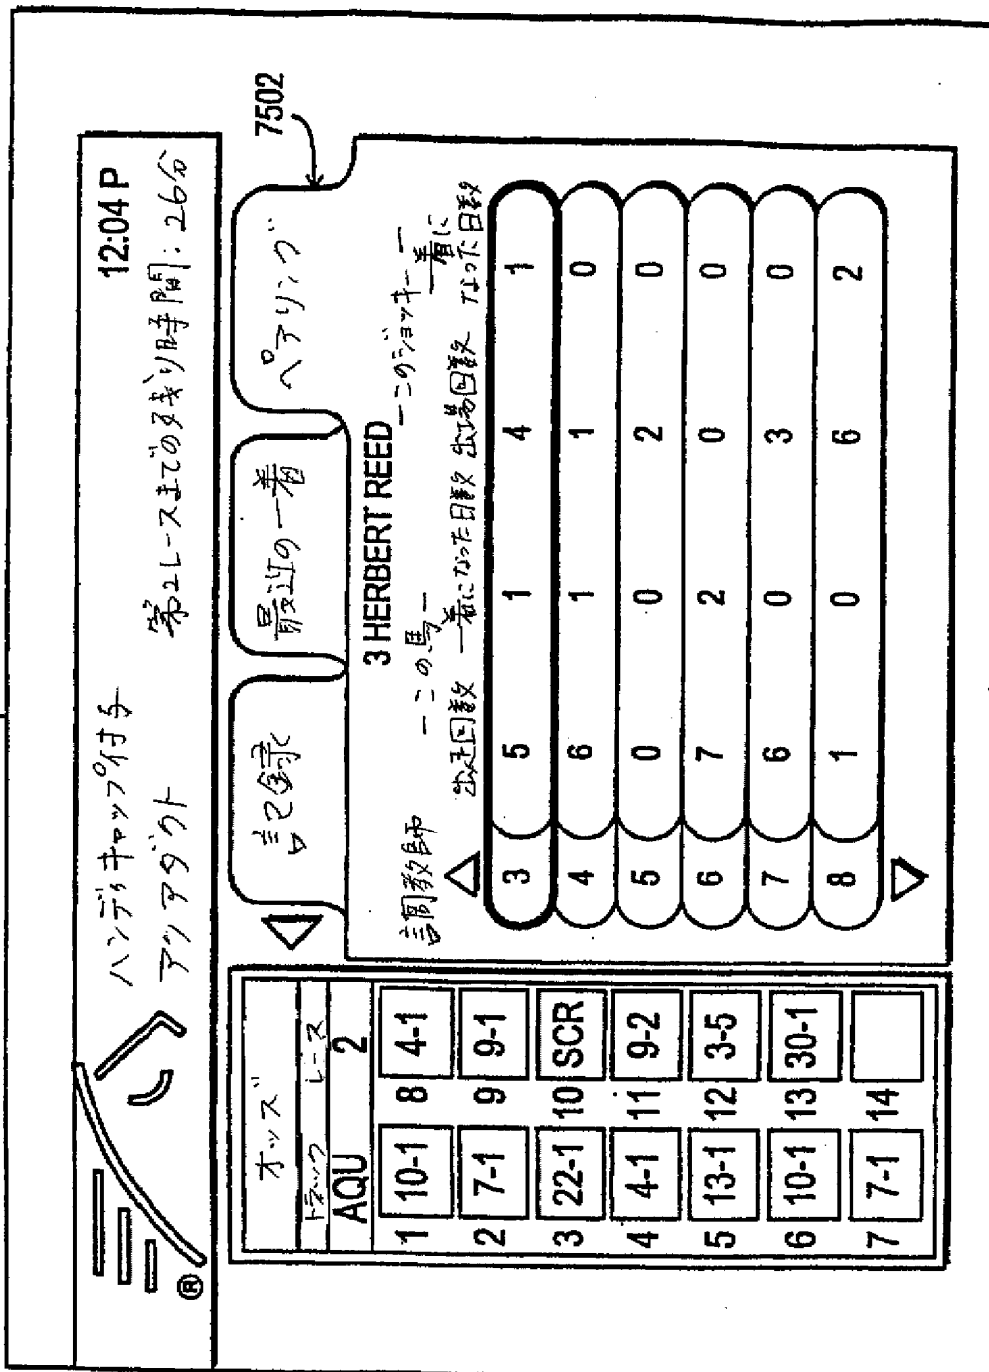 ハンディキャップ付き
アップアダクト
12:04 P
第2レースまでの残り時間：26分
7502
オッズ
トラック レース
AQU 2
1 10-1 8 4-1
2 7-1 9 9-1
3 22-1 10 SCR
4 4-1 11 9-2
5 13-1 12 3-5
6 10-1 13 30-1
7 7-1 14
記録 最近の一着 ペアリング
3 HERBERT REED
調教師 ーこの馬ー ーこのジョッキーー
出走回数 一着になった日数 出場回数 一着になった日数
3 5 1 4 1
4 6 1 1 0
5 0 0 2 0
6 7 2 0 0
7 6 0 3 0
8 1 0 6 2
®